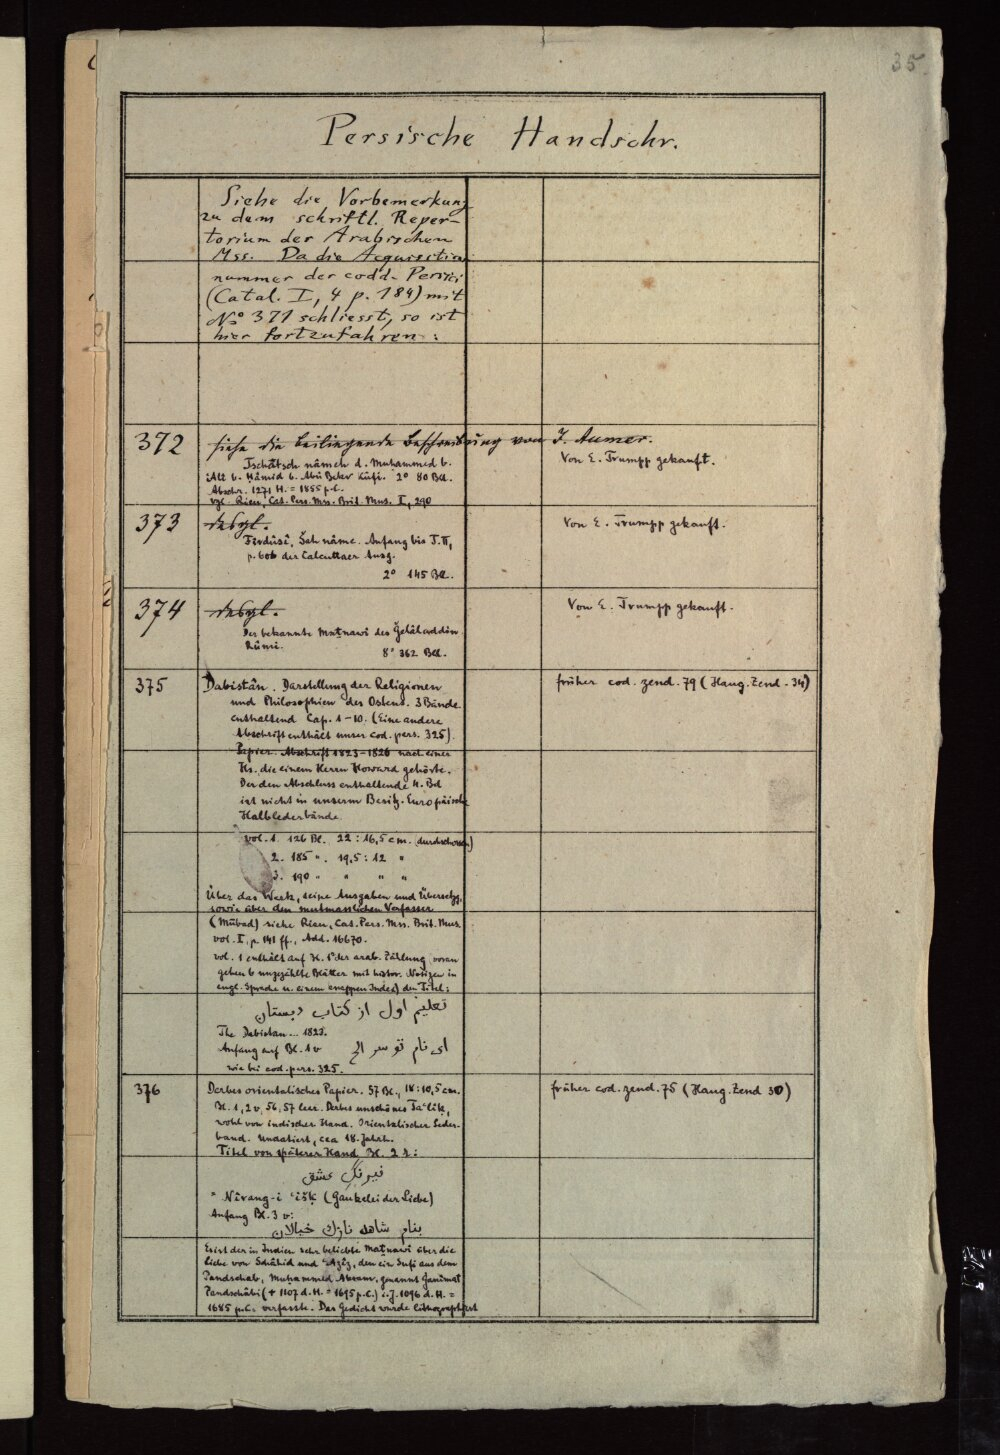 35
Persische Handschr.
Siehe die Vorbemerkung
zu dem schriftl. Reper-
torium der Arabischen
Mss. Da die Acquisition
nummer der codd. Persici
(Catal. I, 4 p. 184) mit
No 371 schliesst, so ist
hier fortzufahren:
372 siehe die beiliegende Beschreibung von J. Aumer.
Tschâtsch nâmeh d. Muhammed b.
Alî b. Ḥâmid b. Abû Beker Kûfî. 2° 80 Bll.
Abschr. 1271 H. = 1855 p.C.
vgl. Rieu, Cat. Pers. Mss. Brit. Mus. I, 290
Von E. Trumpp gekauft.
373 desgl.
Firdûsî, Šah nâme. Anfang bis T. II,
p. 606 der Calcuttaer Ausg.
2° 145 Bll.
Von E. Trumpp gekauft.
374 desgl.
Der bekannte Maṯnawî des Ǧelâl eddîn
Rûmî.
8° 362 Bll.
Von E. Trumpp gekauft.
375 Dabistân. Darstellung der Religionen
und Philosophien des Ostens. 3 Bände
enthaltend Cap. 1-10. (Eine andere
Abschrift enthält unser cod. pers. 325)
Papier. Abschrift 1823-1826 nach einer
Hs. die einem Herrn Howard gehörte.
Der den Abschluss enthaltende 4. Bd
ist nicht in unserm Besitz. Europäische
Halblederbände.
vol. 1. 126 Bl. 22 : 16,5 cm. (durchschossen)
2. 185 " . 19,5 : 12 "
3. 190 " " " "
Über das Werk, seine Ausgaben und Übersetzg.
sowie über den mutmasslichen Verfasser
(Mûbad) siehe Rieu, Cat. Pers. Mss. Brit. Mus.
vol. I, p. 141 ff., Add. 16670.
vol. 1 enthält auf Bl. 1r der arab. Zählung, voran
gehen 6 ungezählte Blätter mit histor. Notizen in
engl. Sprache u. einem knappen Index) den Titel:
تعليم اول از كتاب دبستان
The Dabistan ... 1823.
Anfang auf Bl. 1v اى نام تو سر الخ
wie bei cod. pers. 325.
früher cod. zend. 79 (Haug. Zend. 34)
376 Derbes orientalisches Papier. 57 Bl., 18 : 10,5 cm.
Bl. 1, 2v, 56, 57 leer. Derbes unschönes Ta'lîḳ,
wohl von indischer Hand. Orientalischer Leder-
band. Undatiert, ca 18. Jahrh.
Titel von späterer Hand Bl. 2r:
نيرنگ عشق
= Nîrang-i 'išḳ (Gaukelei der Liebe)
Anfang Bl. 3v:
بنام شاهد نازك خيالان
Es ist der in Indien sehr beliebte Maṯnawî über die
Liebe von Schâhid und 'Azîz, den ein Sufi aus dem
Pandschab, Muḥammed Akram, genannt Ganîmat
Pandschâbî († 1107 d. H. = 1695 p.C.) i. J. 1096 d. H. =
1685 p.C. verfasste. Das Gedicht wurde lithographiert
früher cod. zend. 75 (Haug. Zend 30)